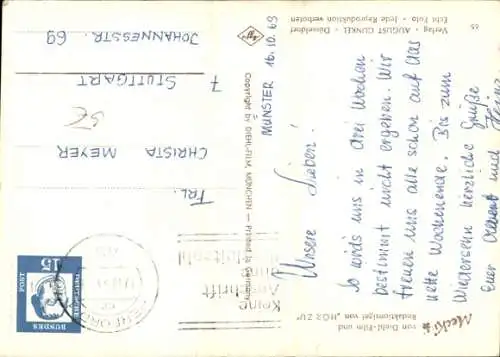 MÜNSTER 16.10.63
Unsere Lieben!
So wird's uns in drei Wochen
bestimmt nicht ergehen. Wir
freuen uns alle schon auf das
nette Wochenende. Bis zum
Wiedersehn herzliche Grüße
Euer und Heinz
FRL.
CHRISTA MEYER
7 STUTTGART
JOHANNESSTR. 69
Mecki
von Diehl-Film und
Redaktionsigel von „HÖR ZU"
Copyright by DIEHL-FILM, MÜNCHEN — Printed in Germany
Verlag · AUGUST GUNKEL · Düsseldorf
Echt Foto · Jede Reproduktion verboten
65
Keine
Anschrift
ohne
Postleitzahl
HERFORD
15
DEUTSCHE
BUNDES
POST